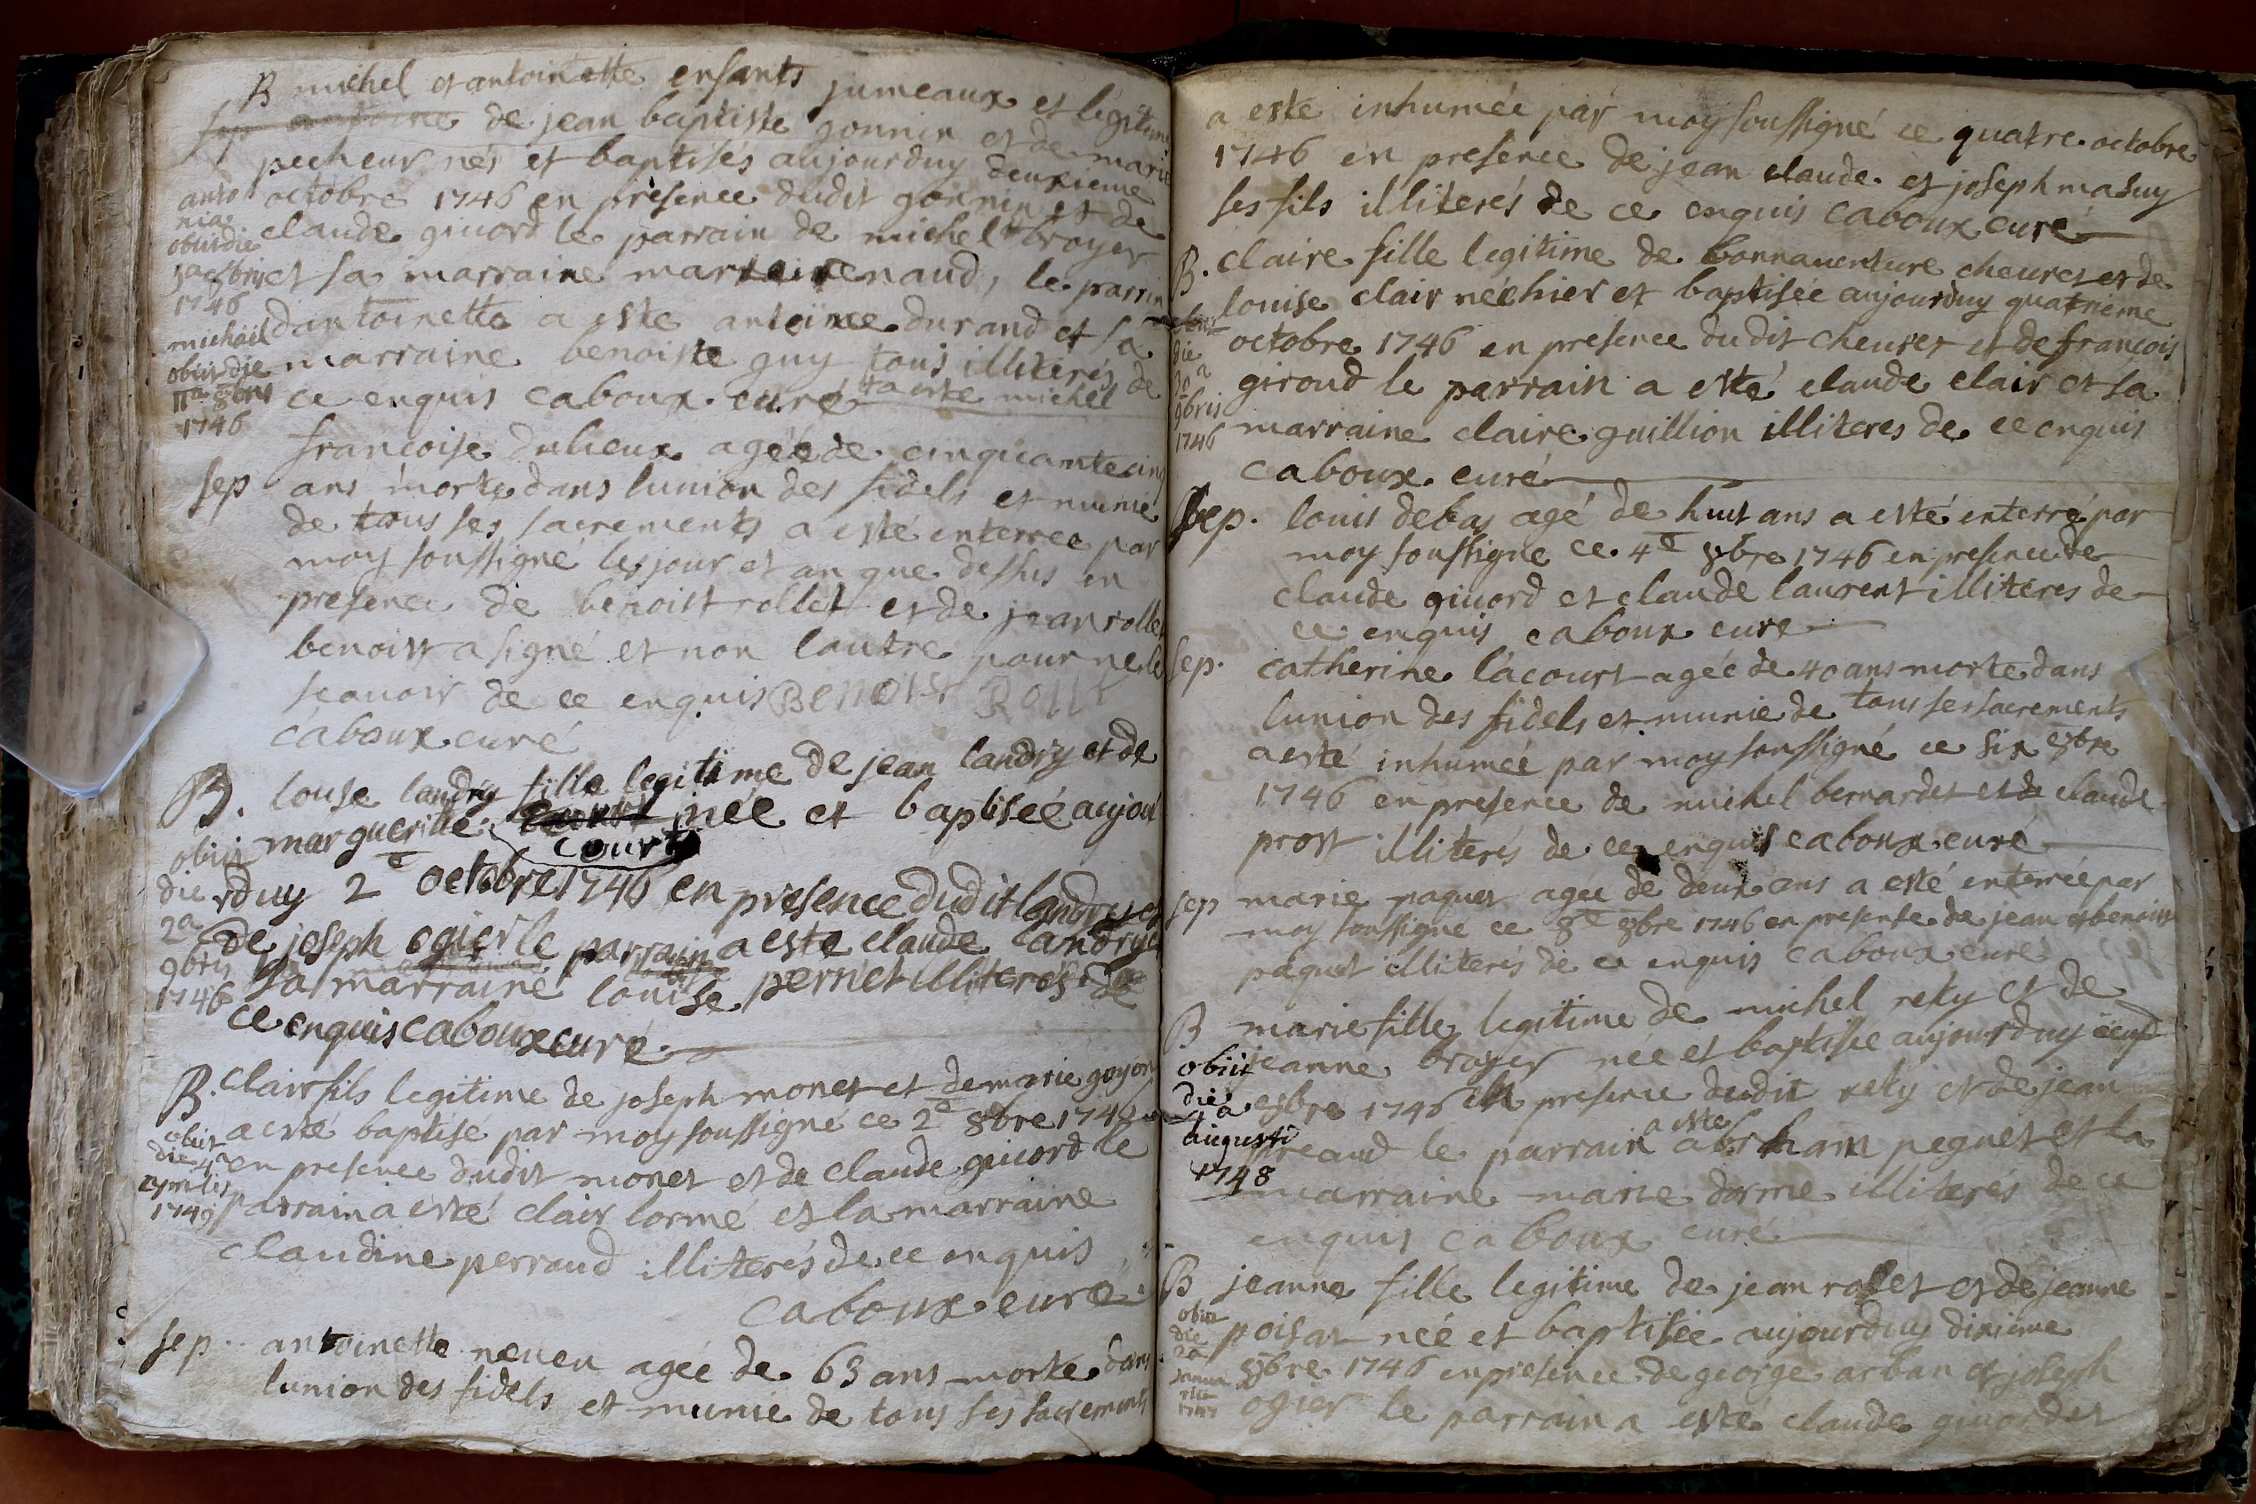 B michel et antoinette enfants jumeaux et légitimes
sep de jean baptiste gonnin et de marie
pecheur nés et baptisés aujourduy deuxieme
octobre 1746 en présence dudit gonnin et de
claude giuord le parrain de michel broyer
et sa marraine renaud, le parrin
dantoinette a este antoinee durand et sa
marraine benoiste guy tous illiterés de
ce enquis caboux curé a este michel
anto
nia
obiit die
5a 8bris
1746
michael
obiit die
11a 8bris
1746
françoise dulieux agée de cinquante cinq
sep ans morte dans lunion des fidels et munie
de tous ses sacrements a esté enterree par
moy soussigné les jour et an que dessus en
presence de benoist rollet et de jean rollet
benoist a signé et non lautre pour ne le
scauoir de ce enquis BENOIST ROLLT
caboux curé
B. louse landry fille legitime de jean landry et de
margueritte née et baptisée aujou
court
rduy 2e octobre 1746 en presence dudit landry et
de joseph ogier le parrain a este claude landry et
sa marraine louise pernet illiterés de
ce enquis caboux curé
obiit
die
2a
9bris
1746
B. clair fils legitime de joseph monet et de marie goyon
a esté baptisé par moy soussigné ce 2e 8bre 1746
en presence dudit monet et de claude giuord le
parrain a esté clair lormé et la marraine
claudine perraud illiterés de ce enquis
caboux curé
obiit
die 4a
1749
sep. antoinette neueu agée de 63 ans morte dans
lunion des fidels et munie de tous ses sacrements
a este inhumée par moy soussigné ce quatre octobre
1746 en presence de jean claude et joseph masuy
ses fils illiterés de ce enquis caboux curé
B. claire fille legitime de bonnauenture cheuret et de
louise clair née hier et baptisée aujourduy quatrieme
octobre 1746 en presence dudit cheuret et de francois
giroud le parrain a esté claude clair et sa
marraine claire guillion illiteres de ce enquis
caboux curé
die
20a
9bris
1746
sep. louis debas agé de huit ans a esté enterré par
moy soussigné ce 4e 8bre 1746 en presence de
claude giuord et claude laurent illiteres de
ce enquis caboux curé
sep. catherine lacourt agée de 40 ans morte dans
lunion des fidels et munie de tous ses sacrements
a esté inhumée par moy soussigné ce six 8bre
1746 en presence de michel bernardet et de claude
prost illiterés de ce enquis caboux curé
sep marie paquet agée de deux ans a esté enterrée par
moy soussigné ce 8e 8bre 1746 en presente de jean et benoist
paquet illiterés de ce enquis caboux curé
B marie fille legitime de michel reky et de
jeanne broyer née et baptisée aujourduy neuf
8bre 1746 en presence dudit reky et de jean
le parrain a este abrham peguet et la
marraine marie dorme illiteres de ce
enquis caboux curé
obiit
die
augusti
1748
B jeanne fille legitime de jean rollet et de jeanne
poisat née et baptisée aujourduy dixieme
8bre 1746 en presence de george arban et joseph
ogier le parrain a este claude giuordet
obiit
die
2a
janua
rii
1747